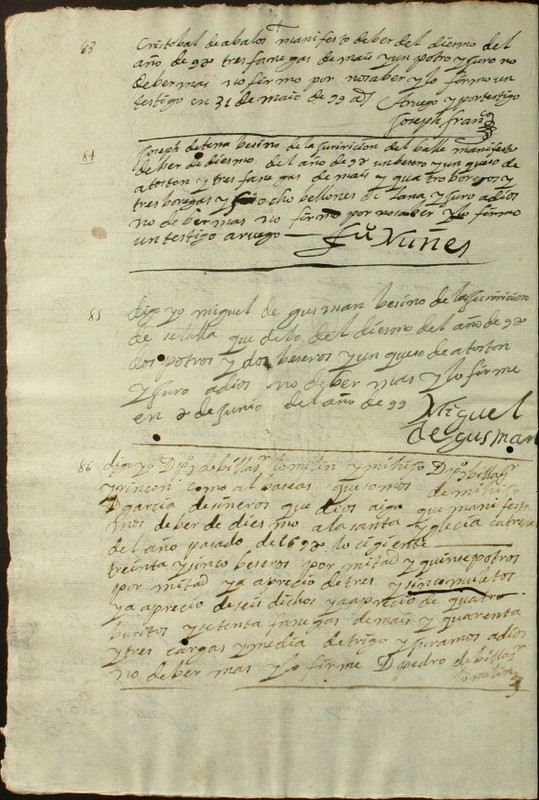 83 Cristobal de abalos manifesto deber del diesmo del
año de 98 tres fanegas de mais y un potro y juro no
deber mas no firmo por no saber y lo firmo un
testigo en 31 de maio de 99 a Aruego y por testigo
Joseph fran
84 Joseph de tena besino de la juridicion del balle manifesto
deber de diesmo del año de 98 un besero y un queso de
a toston y tres fanegas de mais y quatro boregos y
tres boregas y ocho bellones de lana y juro adios
no deber mas no firmo por no saber y lo firmo
un testigo a ruego Nuñes
85 digo yo miguel de gusman besino de la juridicion
de que debo del diesmo del año de 98
dos potros y dos beseros y un queso de a toston
y juro adios no deber mas y lo firme
en 2 de junio del año de 99 Miguel
de gusman
86 digo yo Dn po de billasr lomelin y mi hijo Dn po billasr
y rincon como albaseas que somos de mi hijo
D garcia de sineros que dios aiga que manifesta
mos deber de diesmo a la santa yglecia
del año pasado de 1698 lo sigiente
treinta y sinco beseros por mitad y quinse potros
por mitad y a aprecio de tres y sinco muletos
y a aprecio de seis dichos y a aprecio de quatro
buritos y setenta fanegas de mais y quarenta
y tres cargas y media de trigo y juramos adios
no deber mas y lo firme D pedro de billasr
lomelin